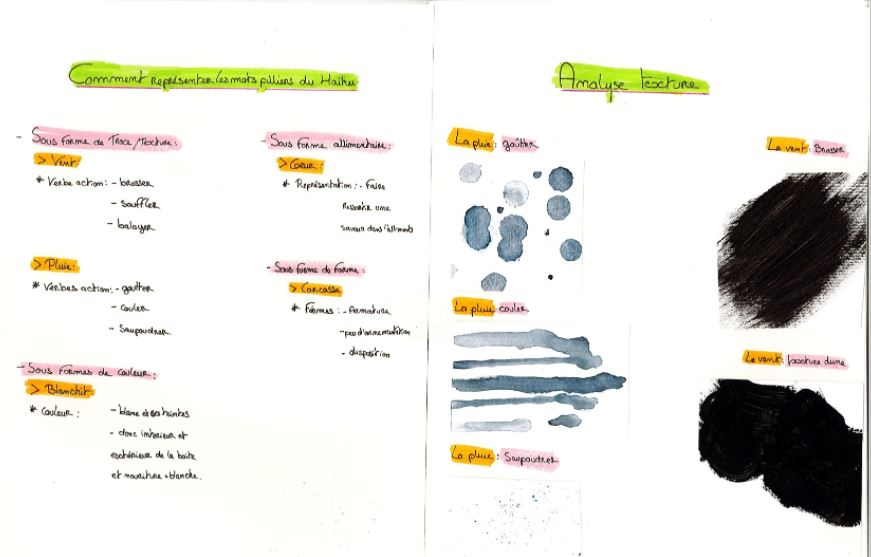 Comment représenter les mots pilliers du Haïku
- Sous forme de Trace/Texture:
> Vent
* Verbe action: - brosser
- souffler
- balayer
> Pluie:
* Verbes action: - goutter
- couler
- Saupoudrer
- Sous formes de couleur:
> Blanchit:
* Couleur: - blanc et ses teintes
- donc intérieur et
extérieur de la boite
et nourriture = blanche.
- Sous forme allimentaire:
> Coeur:
* Représentation: - Faire
Ressortir une
saveur dans l'alliments
- Sous forme de Forme:
> Carcasse
* Formes: - Armature
- peu d'ornementation
- disposition
Analyse texture
La pluie: goutter
La pluie couler
La pluie: Saupoudrer
Le vent: Brosser
Le vent: texture dune